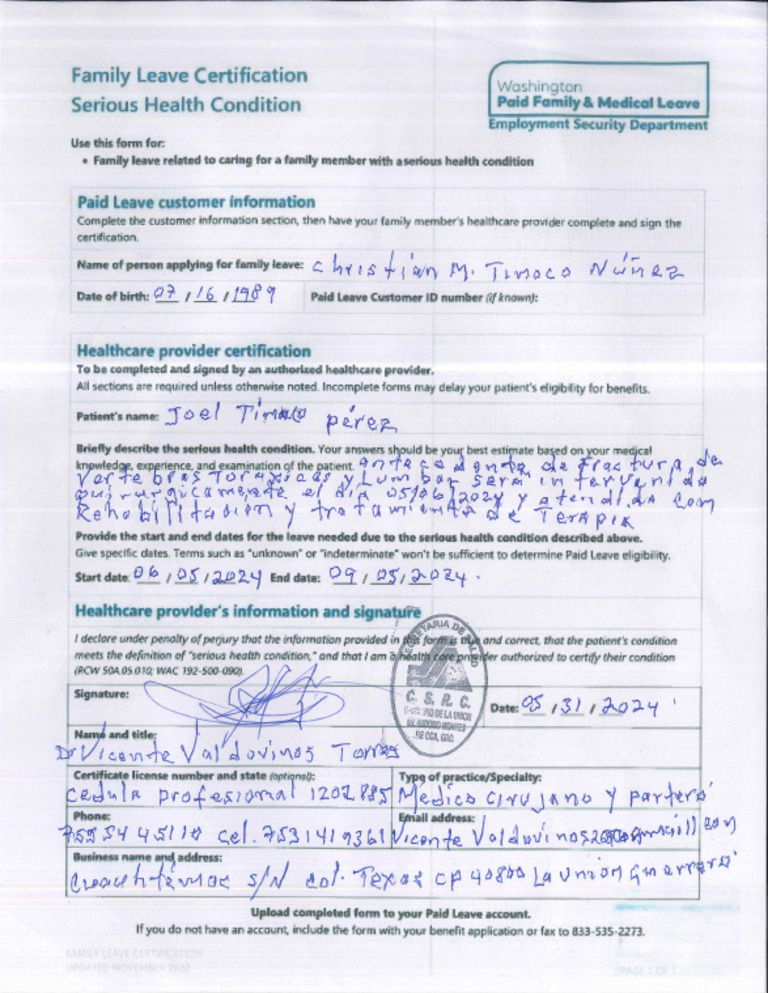 Family Leave Certification
Serious Health Condition
Washington
Paid Family & Medical Leave
Employment Security Department
Use this form for:
• Family leave related to caring for a family member with a serious health condition
Paid Leave customer information
Complete the customer information section, then have your family member's healthcare provider complete and sign the
certification.
Name of person applying for family leave: Christian M. Tinoco Núñez
Date of birth: 07 / 16 / 1989 Paid Leave Customer ID number (if known):
Healthcare provider certification
To be completed and signed by an authorized healthcare provider.
All sections are required unless otherwise noted. Incomplete forms may delay your patient's eligibility for benefits.
Patient's name: Joel Tinoco pérez
Briefly describe the serious health condition. Your answers should be your best estimate based on your medical
knowledge, experience, and examination of the patient. antecedente de fractura de
vertebras Toraxicas y Lumbar sera intervenido
quirurgicamente el dia 05/06/2024 y atendido com
Rehabilitacion y tratamiento de Terapia
Provide the start and end dates for the leave needed due to the serious health condition described above.
Give specific dates. Terms such as "unknown" or "indeterminate" won't be sufficient to determine Paid Leave eligibility.
Start date: 06 / 05 / 2024 End date: 09 / 05 / 2024.
Healthcare provider's information and signature
I declare under penalty of perjury that the information provided in this form is true and correct, that the patient's condition
meets the definition of "serious health condition," and that I am a health care provider authorized to certify their condition
(RCW 50A.05.010, WAC 192-500-090).
SECRETARIA DE SALUD
C. S. R. C.
DE LA UNION
DE ISIDORO MONTES
DE OCA, GRO.
Signature: Date: 05 / 31 / 2024
Name and title:
Dr Vicente Valdovinos Torres
Certificate license number and state (optional): Type of practice/Specialty:
Cedula profesional 1202885 Medico cirujano y partero
Phone: Email address:
75554 45110 cel. 7531419361 Vicente Valdovinos
Business name and address:
Cuauhtémoc s/N col. Texas cp 40800 La Union Guerrero
Upload completed form to your Paid Leave account.
If you do not have an account, include the form with your benefit application or fax to 833-535-2273.
FAMILY LEAVE CERTIFICATION
UPDATED NOVEMBER 2022
PAGE 1 OF 1